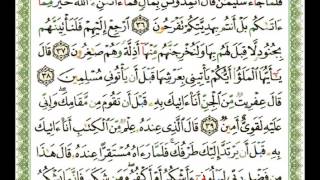 فَلَمَّا جَآءَ سُلَيْمَٰنَ قَالَ أَتُمِدُّونَنِ بِمَالٍ فَمَآ ءَاتَىٰنِۦَ ٱللَّهُ خَيْرٌ مِّمَّآ
ءَاتَىٰكُم بَلْ أَنتُم بِهَدِيَّتِكُمْ تَفْرَحُونَ ٣٦ ٱرْجِعْ إِلَيْهِمْ فَلَنَأْتِيَنَّهُم
بِجُنُودٍ لَّا قِبَلَ لَهُم بِهَا وَلَنُخْرِجَنَّهُم مِّنْهَآ أَذِلَّةً وَهُمْ صَٰغِرُونَ ٣٧ قَالَ
يَٰٓأَيُّهَا ٱلْمَلَؤُا۟ أَيُّكُمْ يَأْتِينِى بِعَرْشِهَا قَبْلَ أَن يَأْتُونِى مُسْلِمِينَ ٣٨
قَالَ عِفْرِيتٌ مِّنَ ٱلْجِنِّ أَنَا۠ ءَاتِيكَ بِهِۦ قَبْلَ أَن تَقُومَ مِن مَّقَامِكَ وَإِنِّى
عَلَيْهِ لَقَوِىٌّ أَمِينٌ ٣٩ قَالَ ٱلَّذِى عِندَهُۥ عِلْمٌ مِّنَ ٱلْكِتَٰبِ أَنَا۠ ءَاتِيكَ
بِهِۦ قَبْلَ أَن يَرْتَدَّ إِلَيْكَ طَرْفُكَ فَلَمَّا رَءَاهُ مُسْتَقِرًّا عِندَهُۥ قَالَ هَٰذَا
مِن فَضْلِ رَبِّى لِيَبْلُوَنِىٓ ءَأَشْكُرُ أَمْ أَكْفُرُ وَمَن شَكَرَ فَإِنَّمَا يَشْكُرُ